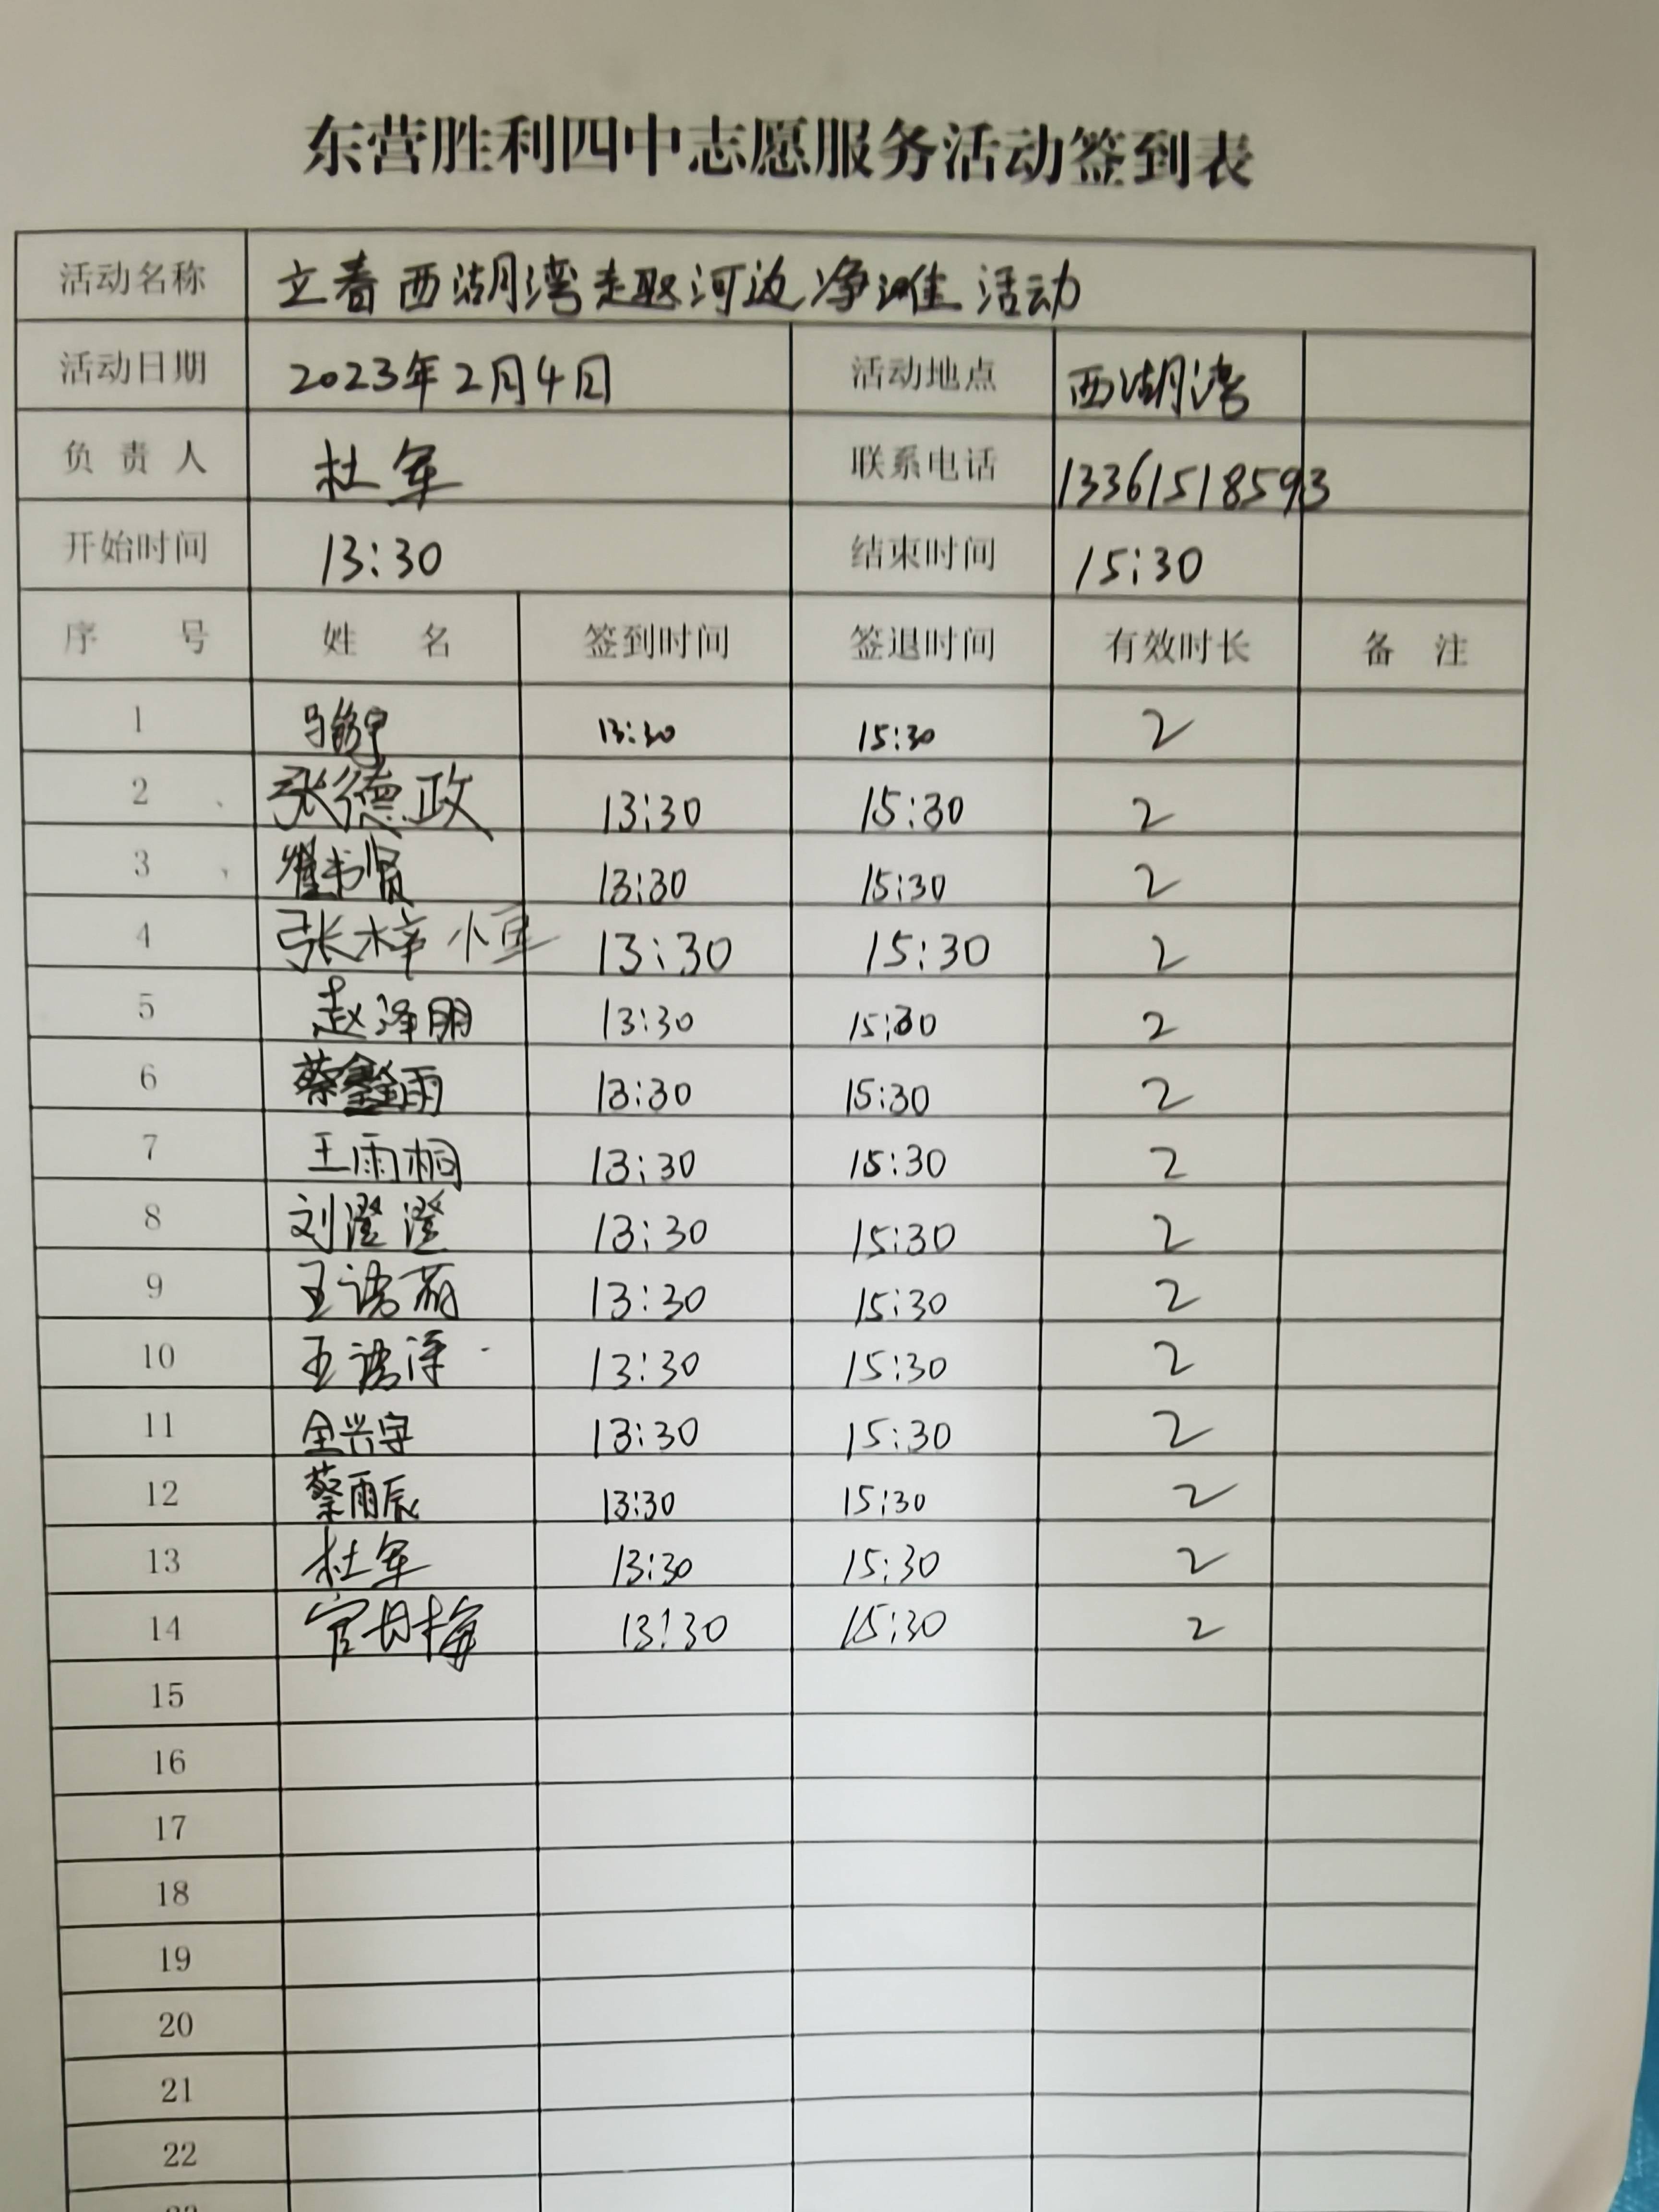 东营胜利四中志愿服务活动签到表
活动名称 立春西湖湾趣河边净滩活动
活动日期 2023年2月4日 活动地点 西湖湾
负责人 杜军 联系电话 13361518593
开始时间 13:30 结束时间 15:30
序号 姓名 签到时间 签退时间 有效时长 备注
1 13:30 15:30 2
2 张德政 13:30 15:30 2
3 崔书贤 13:30 15:30 2
4 张梓恒 13:30 15:30 2
5 赵泽朋 13:30 15:30 2
6 蔡鑫雨 13:30 15:30 2
7 王雨桐 13:30 15:30 2
8 刘澄澄 13:30 15:30 2
9 王语 13:30 15:30 2
10 王语泽 13:30 15:30 2
11 全兴宇 13:30 15:30 2
12 蔡雨辰 13:30 15:30 2
13 杜军 13:30 15:30 2
14 官丹梅 13:30 15:30 2
15
16
17
18
19
20
21
22